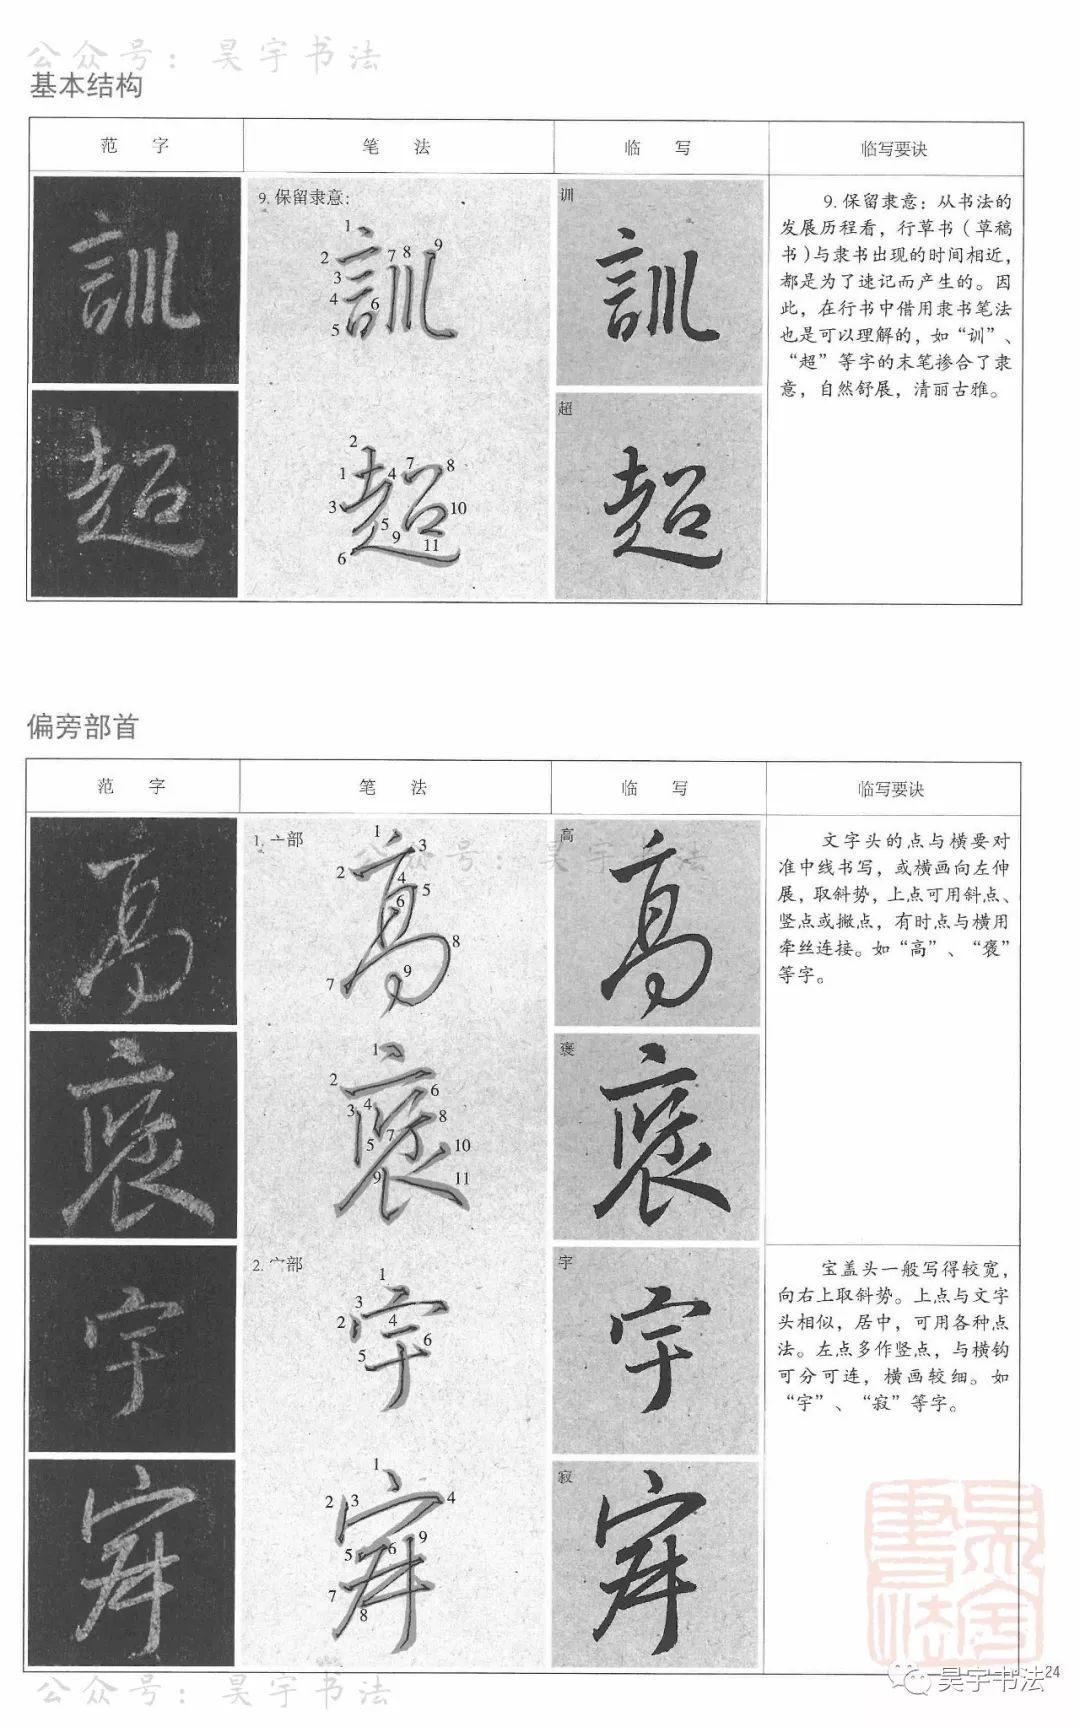 公众号：昊宇书法
基本结构
范　字　笔　法　临　写　临写要诀
9. 保留隶意：
训
1
2
3
4
5
6
7
8
9
9. 保留隶意：从书法的
发展历程看，行草书（草稿
书）与隶书出现的时间相近，
都是为了速记而产生的。因
此，在行书中借用隶书笔法
也是可以理解的，如“训”、
“超”等字的末笔掺合了隶
意，自然舒展，清丽古雅。
超
1
2
3
4
5
6
7
8
9
10
11
偏旁部首
范　字　笔　法　临　写　临写要诀
1. 亠部
公众号：昊宇书法
高
1
2
3
4
5
6
7
8
9
文字头的点与横要对
准中线书写，或横画向左伸
展，取斜势，上点可用斜点、
竖点或撇点，有时点与横用
牵丝连接。如“高”、“褒”
等字。
褒
1
2
3
4
5
6
7
8
9
10
11
2. 宀部
宇
1
2
3
4
5
6
宝盖头一般写得较宽，
向右上取斜势。上点与文字
头相似，居中，可用各种点
法。左点多作竖点，与横钩
可分可连，横画较细。如
“宇”、“寂”等字。
寂
1
2
3
4
5
6
7
8
9
昊宇書法
公众号：昊宇书法
昊宇书法
24